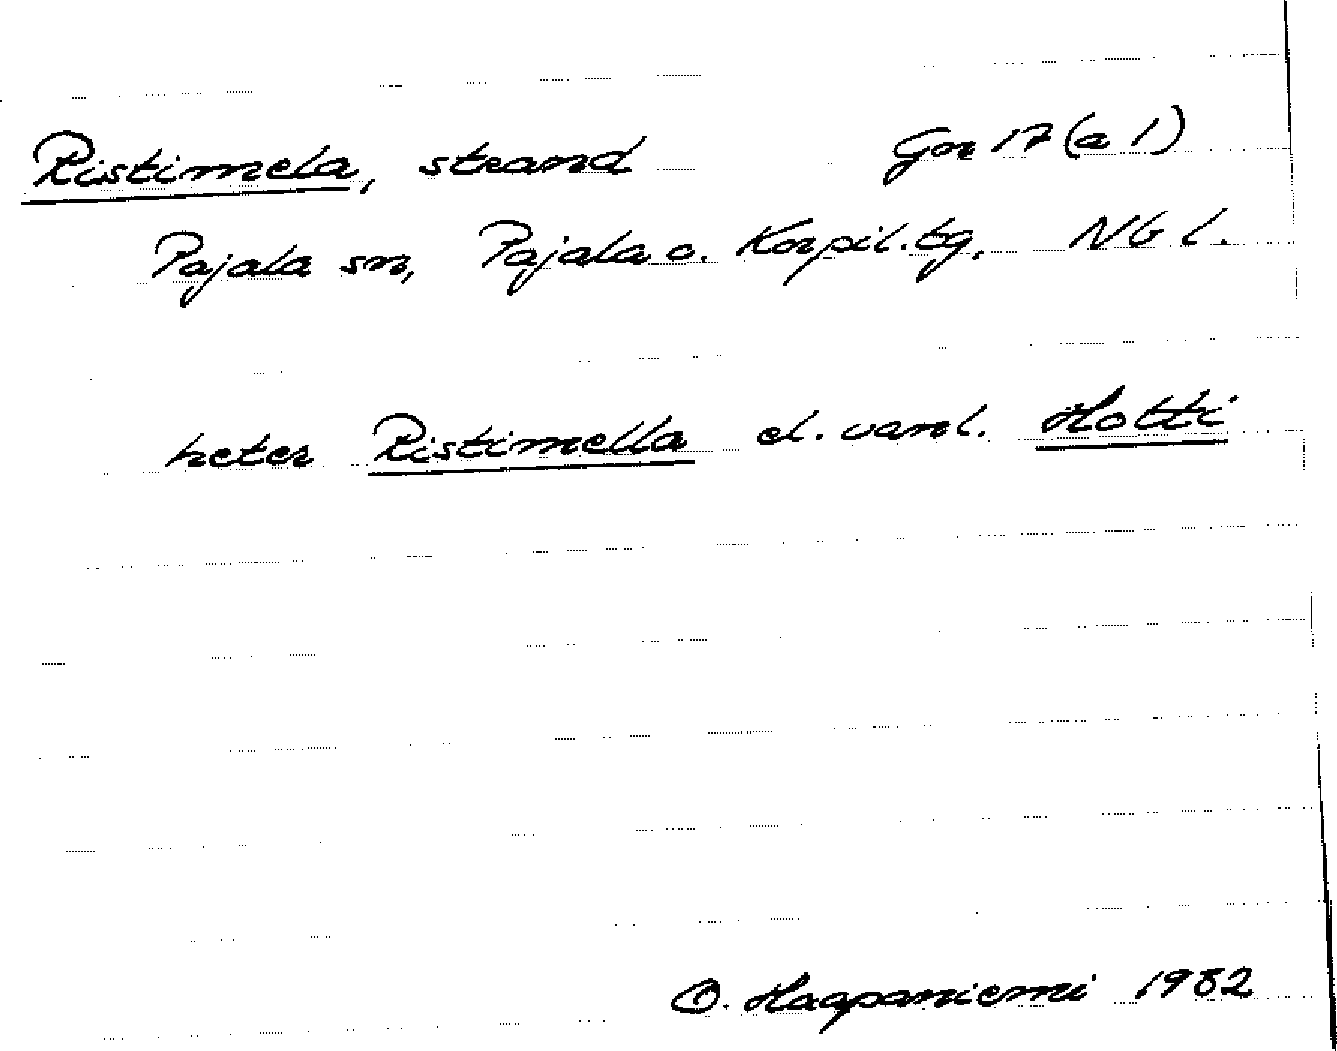 Ristimela, strand Gn 17 (a 1)
Pajala sn, Pajala o. Korpil. tg. Nb l.
heter Ristimella el. vanl. Hotti
O. Haapaniemi 1982